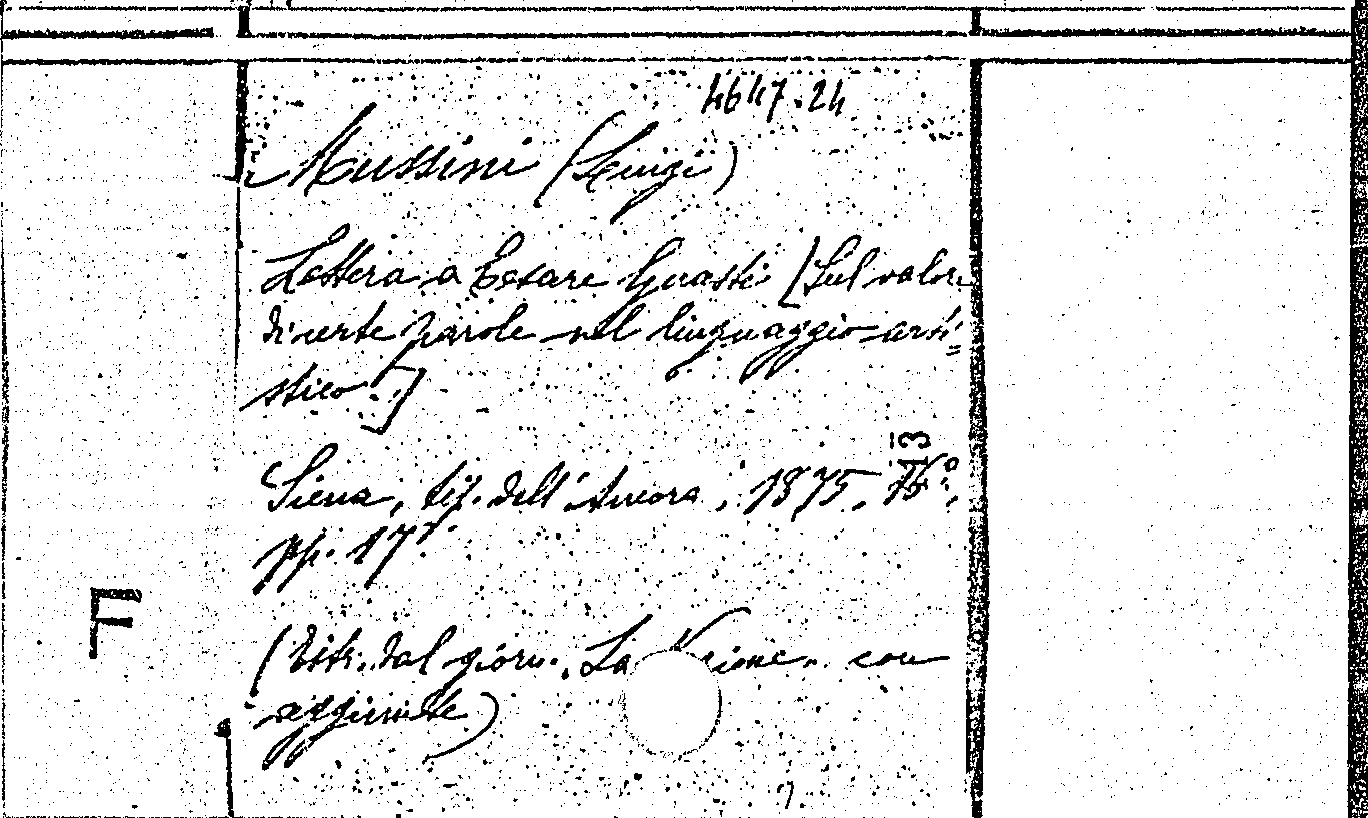 4647.24
Mussini (Luigi)
Lettera a Cesare Guasti [Sul valore
di certe parole nel linguaggio arti=
stico.]
Siena, tip. dell'Ancora, 1875, 
13
pp. 17.
(Estr. dal giorn. La Nazione. con
aggiunte)
F